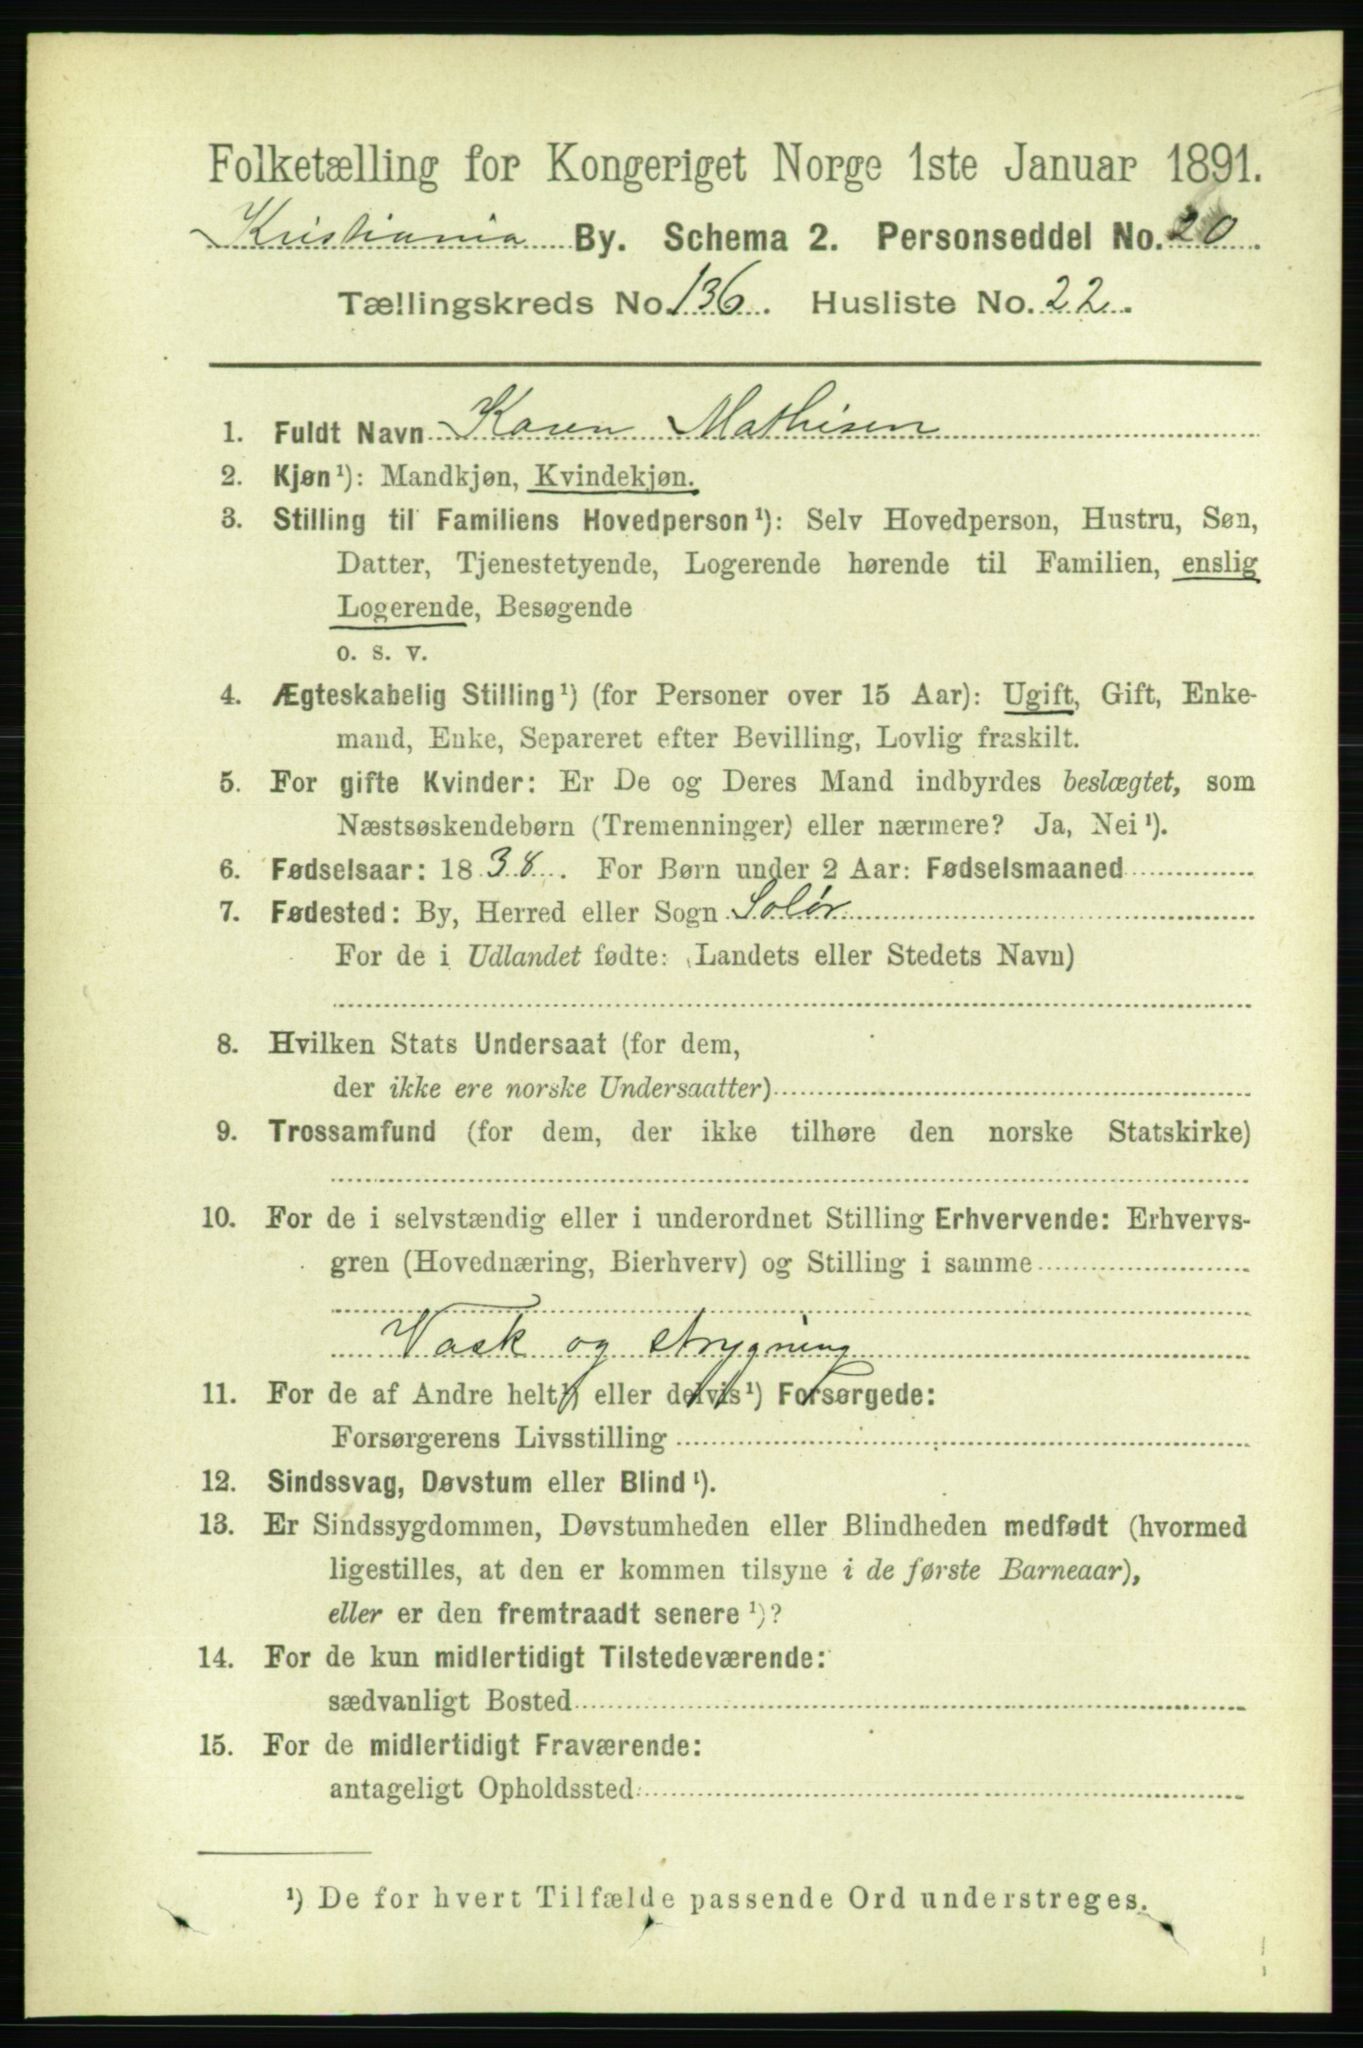 Folketælling for Kongeriget Norge 1ste Januar 1891.
Kristiania By. Schema 2. Personseddel No. 20.
Tællingskreds No. 136. Husliste No. 22.
1. Fuldt Navn Karen Mathisen
2. Kjøn¹): Mandkjøn, Kvindekjøn.
3. Stilling til Familiens Hovedperson¹): Selv Hovedperson, Hustru, Søn,
Datter, Tjenestetyende, Logerende hørende til Familien, enslig
Logerende, Besøgende
o. s. v.
4. Ægteskabelig Stilling¹) (for Personer over 15 Aar): Ugift, Gift, Enke-
mand, Enke, Separeret efter Bevilling, Lovlig fraskilt.
5. For gifte Kvinder: Er De og Deres Mand indbyrdes beslægtet, som
Næstsøskendebørn (Tremenninger) eller nærmere? Ja, Nei¹).
6. Fødselsaar: 1838. For Børn under 2 Aar: Fødselsmaaned
7. Fødested: By, Herred eller Sogn Solør
For de i Udlandet fødte: (Landets eller Stedets Navn)
8. Hvilken Stats Undersaat (for dem,
der ikke ere norske Undersaatter)
9. Trossamfund (for dem, der ikke tilhøre den norske Statskirke)
10. For de i selvstændig eller i underordnet Stilling Erhvervende: Erhvervs-
gren (Hovednæring, Bierhverv) og Stilling i samme
Vask og strygning
11. For de af Andre helt¹) eller delvis¹) Forsørgede:
Forsørgerens Livsstilling
12. Sindssvag, Døvstum eller Blind¹).
13. Er Sindssygdommen, Døvstumheden eller Blindheden medfødt (hvormed
ligestilles, at den er kommen tilsyne i de første Barneaar),
eller er den fremtraadt senere¹)?
14. For de kun midlertidigt Tilstedeværende:
sædvanligt Bosted
15. For de midlertidigt Fraværende:
antageligt Opholdssted
¹) De for hvert Tilfælde passende Ord understreges.